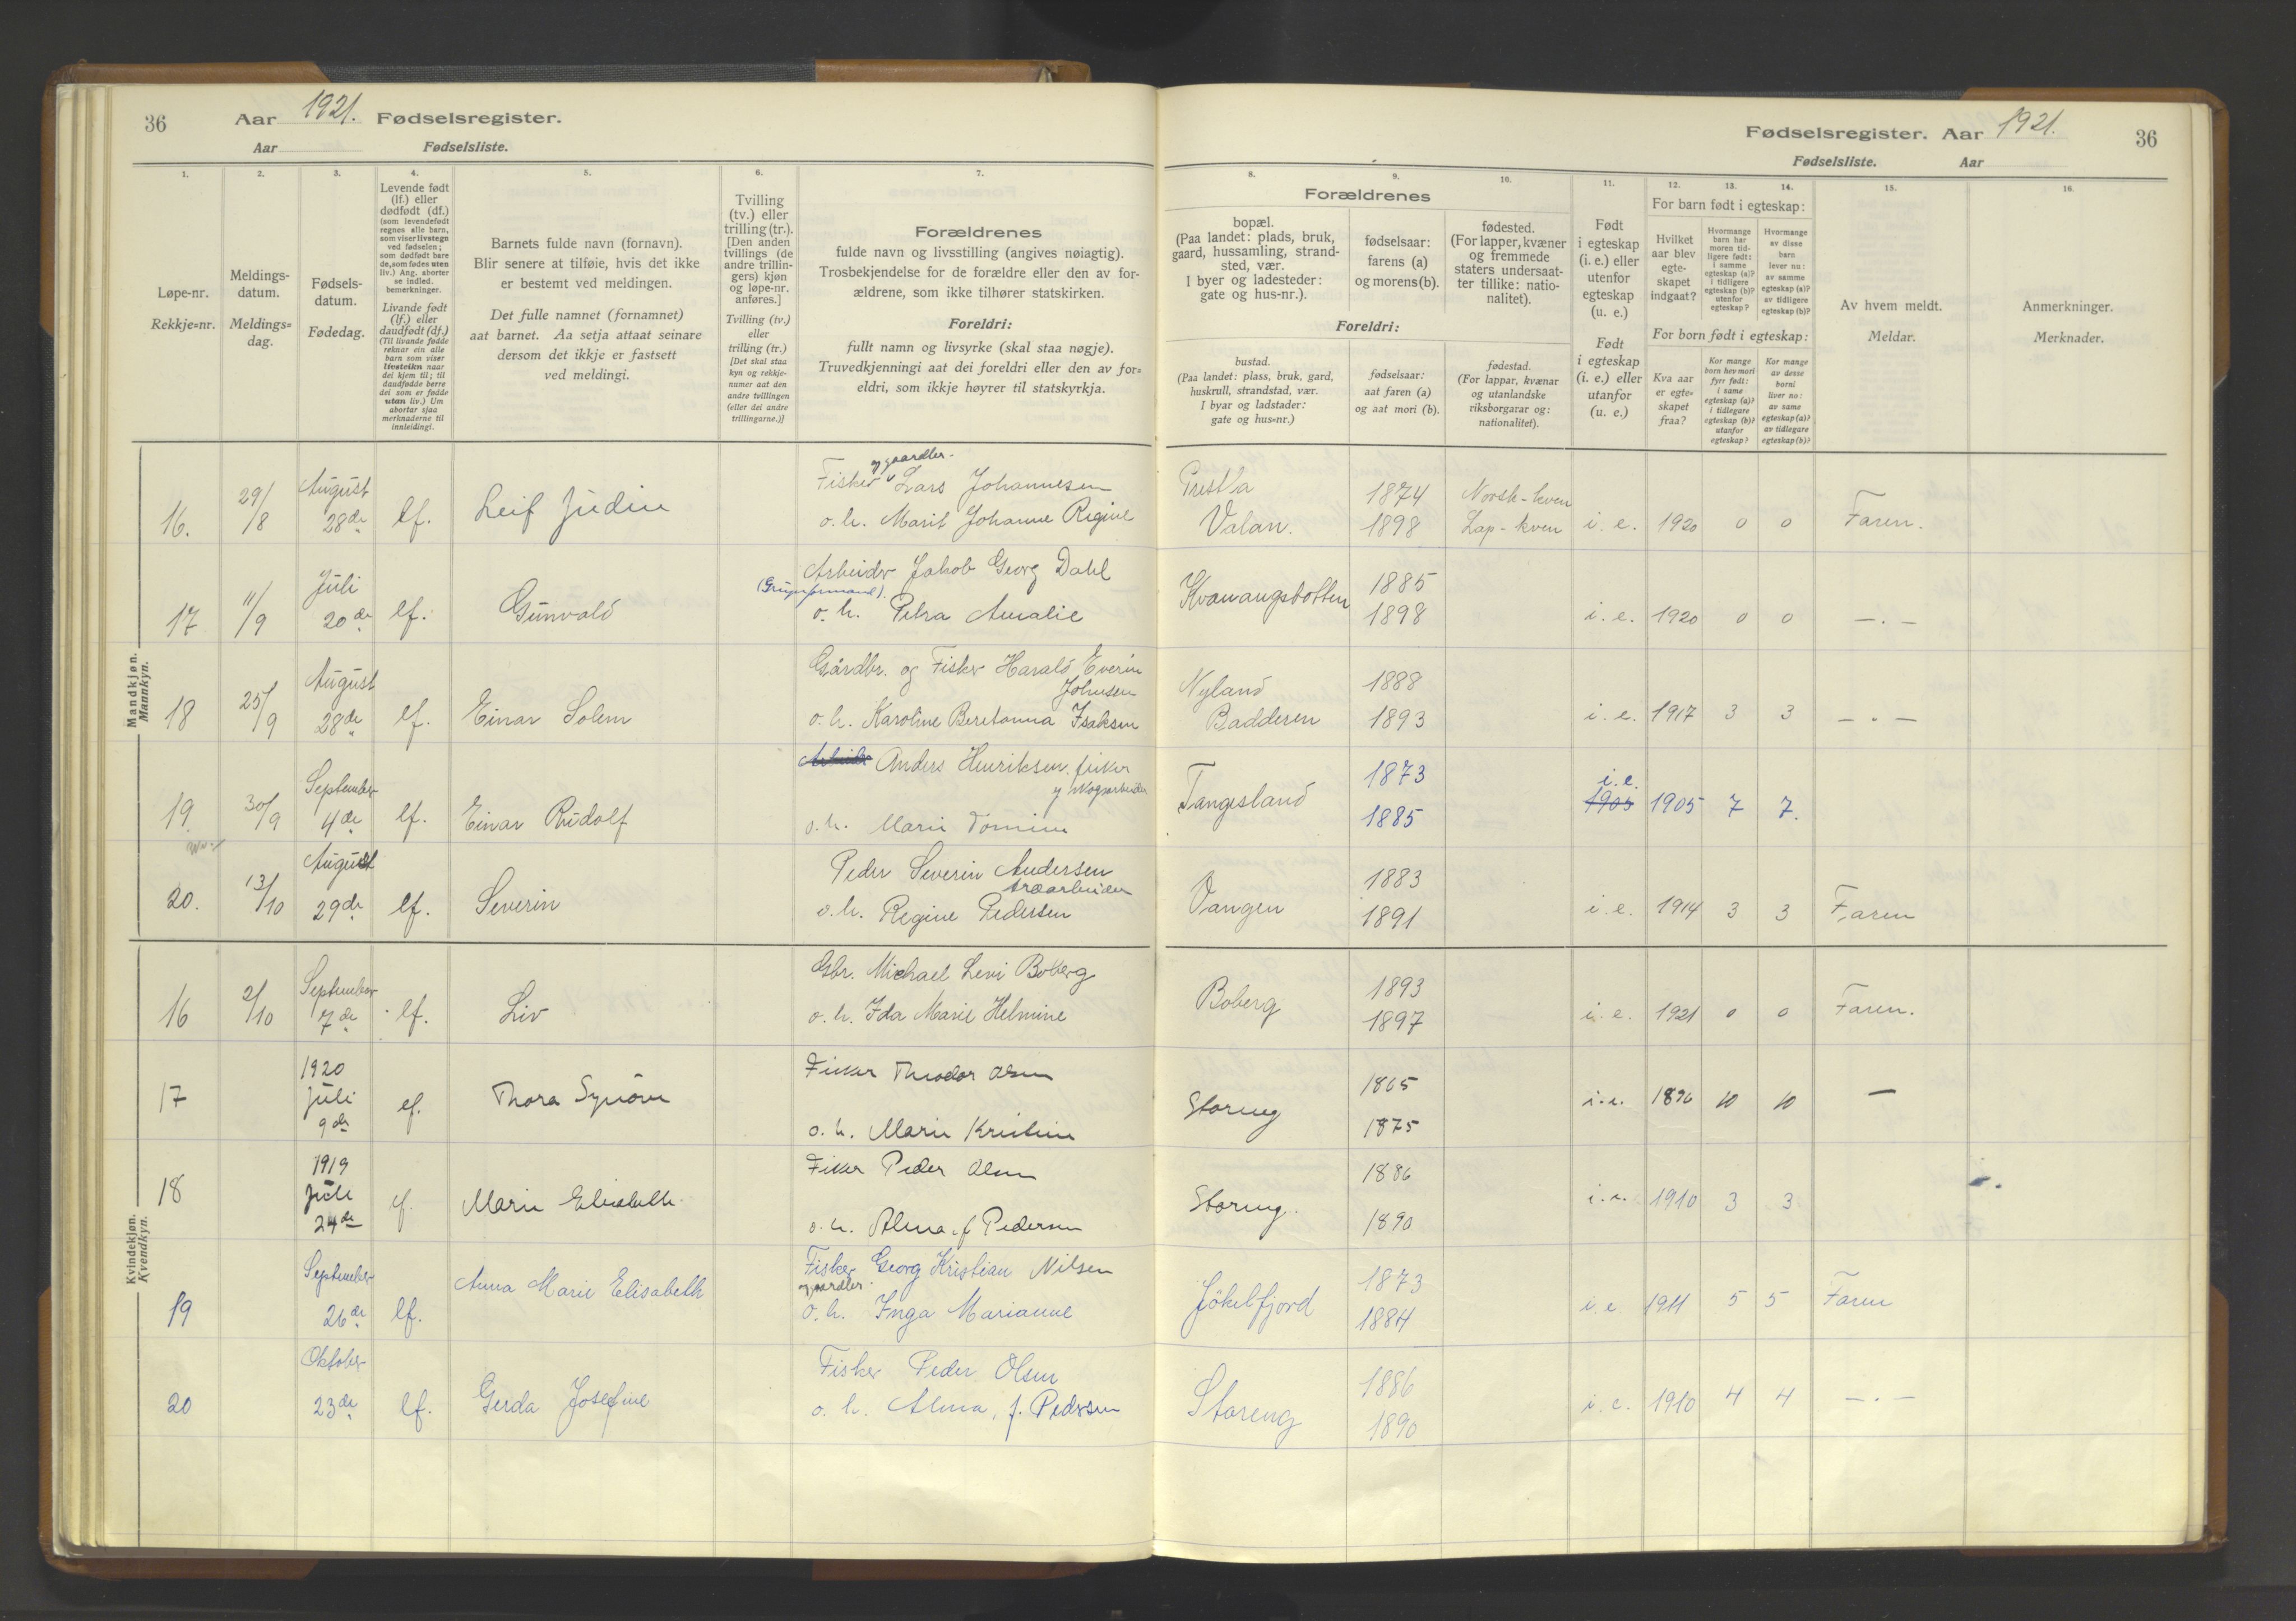 36
Aar 1921. Fødselsregister.
Aar Fødselsliste.
1.
Løpe-nr.
Rekkje=nr.
2.
Meldings-
datum.
Meldings=
dag.
3.
Fødsels-
datum.
Fødedag.
4.
Levende født
(lf.) eller
dødfødt (df.)
(som levendefødt
regnes alle barn,
som viser livstegn
ved fødselen;
som dødfødt bare
de, som fødes uten
liv.) Ang. aborter
se indled.
bemerkninger.
Livande født
(lf.) eller
daudfødt (df.)
(Til livande fødde
reknar ein alle
barn som viser
livsteikn naar
dei kjem til; til
daudfødde berre
dei som er fødde
utan liv.) Um
abortar sjaa
merknaderne til
innleidingi.
5.
Barnets fulde navn (fornavn).
Blir senere at tilføie, hvis det ikke
er bestemt ved meldingen.
Det fulle namnet (fornamnet)
aat barnet. Aa setja attaat seinare
dersom det ikkje er fastsett
ved meldingi.
6.
Tvilling
(tv.) eller
trilling (tr.).
[Den anden
tvillings (de
andre trillin-
gers) kjøn
og løpe-nr.
anføres.]
Tvilling (tv.)
eller
trilling (tr.)
[Det skal staa
kyn og rekkje-
numer aat den
andre tvillingen
(eller dei andre
trillingarne.)]
7.
Forældrenes
fulde navn og livsstilling (angives nøiagtig).
Trosbekjendelse for de forældre eller den av for-
ældrene, som ikke tilhører statskirken.
Foreldri:
fullt namn og livsyrke (skal staa nøgje).
Truvedkjenningi aat dei foreldri eller den av for=
eldri, som ikkje høyrer til statskyrkja.
Mandkjøn.
Mannkyn.
16. 29/8 August 28de lf. Leif Judin
Fisker og gaardbr. Lars Johannesen
o. h. Marit Johanne Regine
17 11/9 Juli 20de lf. Gunvald
Arbeider Jakob Georg Dahl
o. h. Petra Amalie
18 25/9 August 28de lf. Einar Solem
Gårdbr. og Fisker Harald Everin
Johnsen
o. h. Karoline Beretanna Isaksen
19. 30/9 September 4de lf. Einar Rudolf
Arbeider Anders Henriksen, fisker
o. h. Marie
20. 13/10 August 29de lf. Severin
Peder Severin Andersen
o. h. Regine Pedersen
Kvindekjøn.
Kvendkyn.
16 2/10 September 7de lf. Liv
Gbr. Michael Levi Boberg
o. h. Ida Marie Helmine
17 1920 Juli 9de lf. Thora Synöve
Fisker Theodor Olsen
o. h. Marie Kristine
18 1919 Juli 24de lf. Marie Elisabeth
Fisker Peder Olsen
o. h. Alma f. Pedersen
19 September 26de lf. Anna Marie Elisabeth
Fisker Georg Kristian Nilsen
o. h. Inga Marianne
20 Oktober 23de lf. Gerda Josefine
Fisker Peder Olsen
o. h. Alma, f. Pedersen
Fødselsregister. Aar 1921.
36
Fødselsliste. Aar
8.
Forældrenes
bopæl.
(Paa landet: plads, bruk,
gaard, hussamling, strand-
sted, vær.
I byer og ladesteder:
gate og hus-nr.).
Foreldri:
bustad.
(Paa landet: plass, bruk, gard,
huskrull, strandstad, vær.
I byar og ladstader:
gate og hus=nr.)
9.
fødselsaar:
farens (a)
og morens (b).
fødselsaar:
aat faren (a)
og aat mori (b).
10.
fødested.
(For lapper, kvæner
og fremmede
staters undersaat-
ter tillike: natio-
nalitet).
fødestad.
(For lappar, kvænar
og utanlandske
riksborgarar og:
nationalitet).
11.
Født
i egteskap
(i. e.) eller
utenfor
egteskap
(u. e.)
Født
i egteskap
(i. e.) eller
utanfor
(u. e.)
12.
For barn født i egteskap:
Hvilket
aar blev
egte-
skapet
indgaat?
For born født i egteskap:
Kva aar
er egte-
skapet
fraa?
13.
Hvormange
barn har
moren tid-
ligere født:
i samme
egteskap (a)?
i tidligere
egteskap (b)?
utenfor
egteskap?
Kor mange
born hev mori
fyrr født:
i same
egteskap (a)?
i tidlegare
egteskap (b)?
utanfor
egteskap?
14.
Hvormange
av disse
barn
lever nu:
av samme
egteskap (a)?
av tidligere
egteskap (b)?
Kor mange
av desse
borni
liver no:
av same
egteskap (a)?
av tidlegare
egteskap (b)?
15.
Av hvem meldt.
Meldar.
16.
Anmerkninger.
Merknader.
Valan. 1874 1898 Norsk-kven Lap-kven i. e. 1920 0 0 Faren.
Kvænangsbotten 1885 1898 i. e. 1920 0 0 —.—
Nyland Badderen 1888 1893 i. e. 1917 3 3 —.—
Tangesland 1873 1885 i. e. 1905 1905 7 7.
Vangen 1883 1891 i. e. 1914 3 3 Faren
Boberg 1893 1897 i. e. 1921 0 0 Faren.
Storeng 1865 1875 i. e. 1896 10 10 —
Storeng. 1886 1890 i. e. 1910 3 3
Jökelfjord 1873 1884 i. e. 1911 5 5 Faren
Storeng 1886 1890 i. e. 1910 4 4 —.—